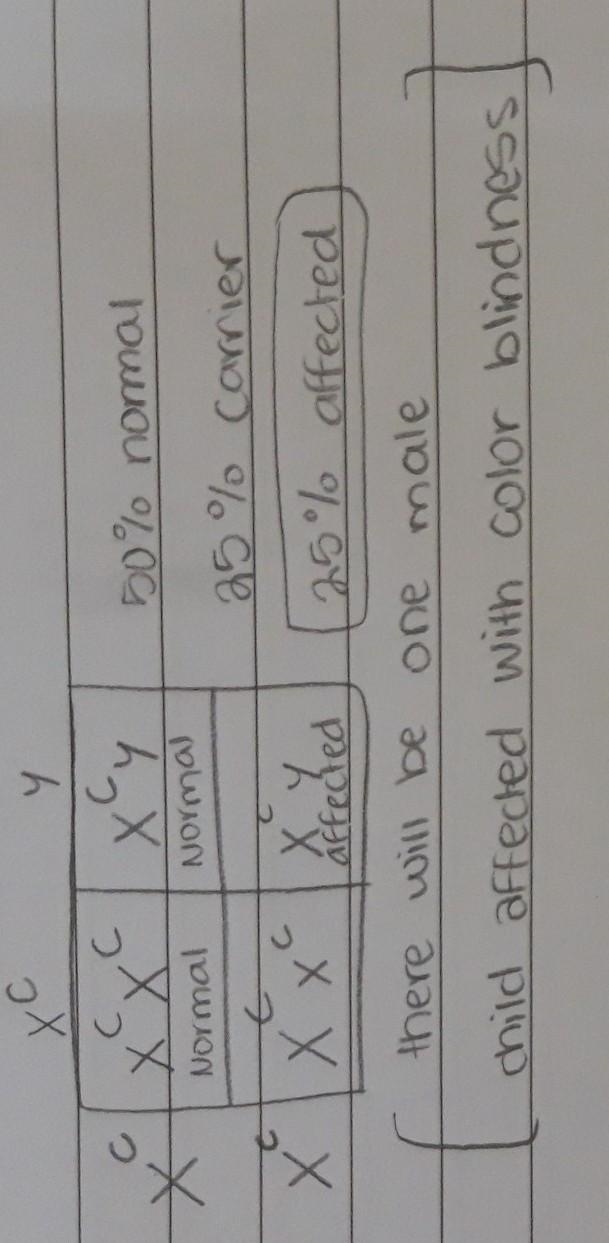 X^C y
X^C X^C X^C X^C y 50% normal
Normal Normal
25% carrier
X^c X^c X^c X^c y 25% affected
affected
there will be one male
child affected with color blindness